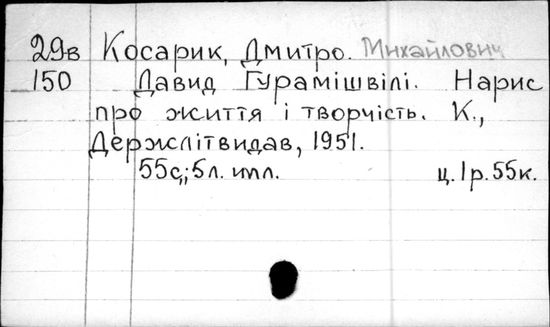 29в Косарик, Дмитро. Михайлович
150 Давид Гурамішвілі. Нарис
про життя і творчість. К.,
Держлітвидав, 1951.
55с.; 5л. ілл. ц. 1р. 55к.